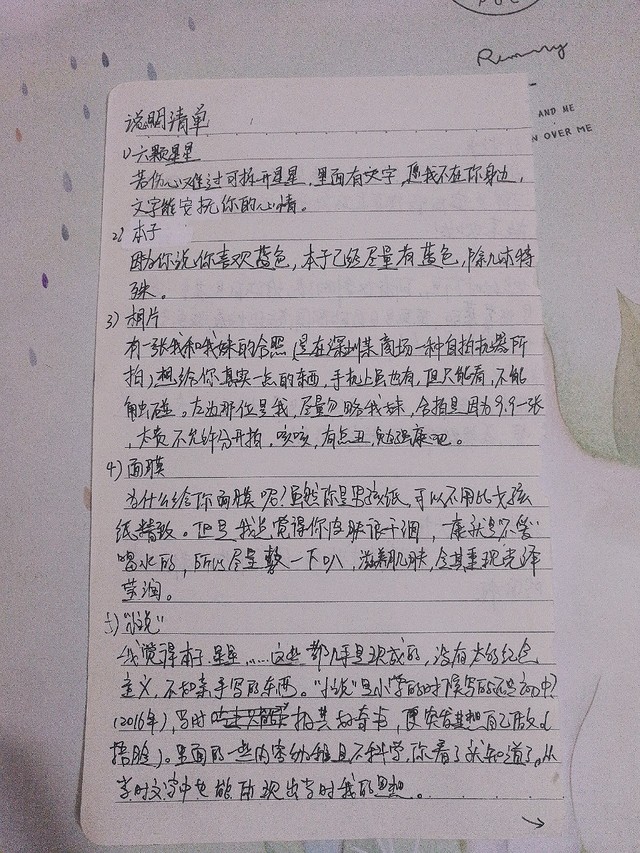 Rummy
AND ME
N OVER ME
说明清单
1) 六颗星星
若伤心难过可拆开星星，里面有文字，愿我不在你身边，
文字能安抚你的心情。
2) 本子
因为你说你喜欢蓝色，本子已经尽量有蓝色，除几本特
殊。
3) 相片
有一张我和我妹的合照（是在深圳某商场一种自拍机器所
拍）想给你真实一点的东西，手机上虽也有，但只能看，不能
触碰。左边那位是我，尽量忽略我妹，合拍是因为9.9一张
，太贵不允许分开拍，咳咳，有点丑，勉强康吧。
4) 面膜
为什么给你面膜呢？虽然你是男孩纸，可以不用比女孩
纸精致。但是我总觉得你皮肤很干涸，康就是不爱
喝水的，所以尽量敷一下叭，滋养肌肤，令其重现光泽
莹润。
5) "小说"
我觉得本子、星星……这些都几乎是现成的，没有太的纪念
意义，不如亲手写的东西。"小说"是小学的时候写的还是初中？
(2016年)，当时 拍其好奇书，便突发其想自己做（
捂脸）。里面的一些内容幼稚且不科学，你看了就知道了。从
当时文字中也能所现出当时我的思想。